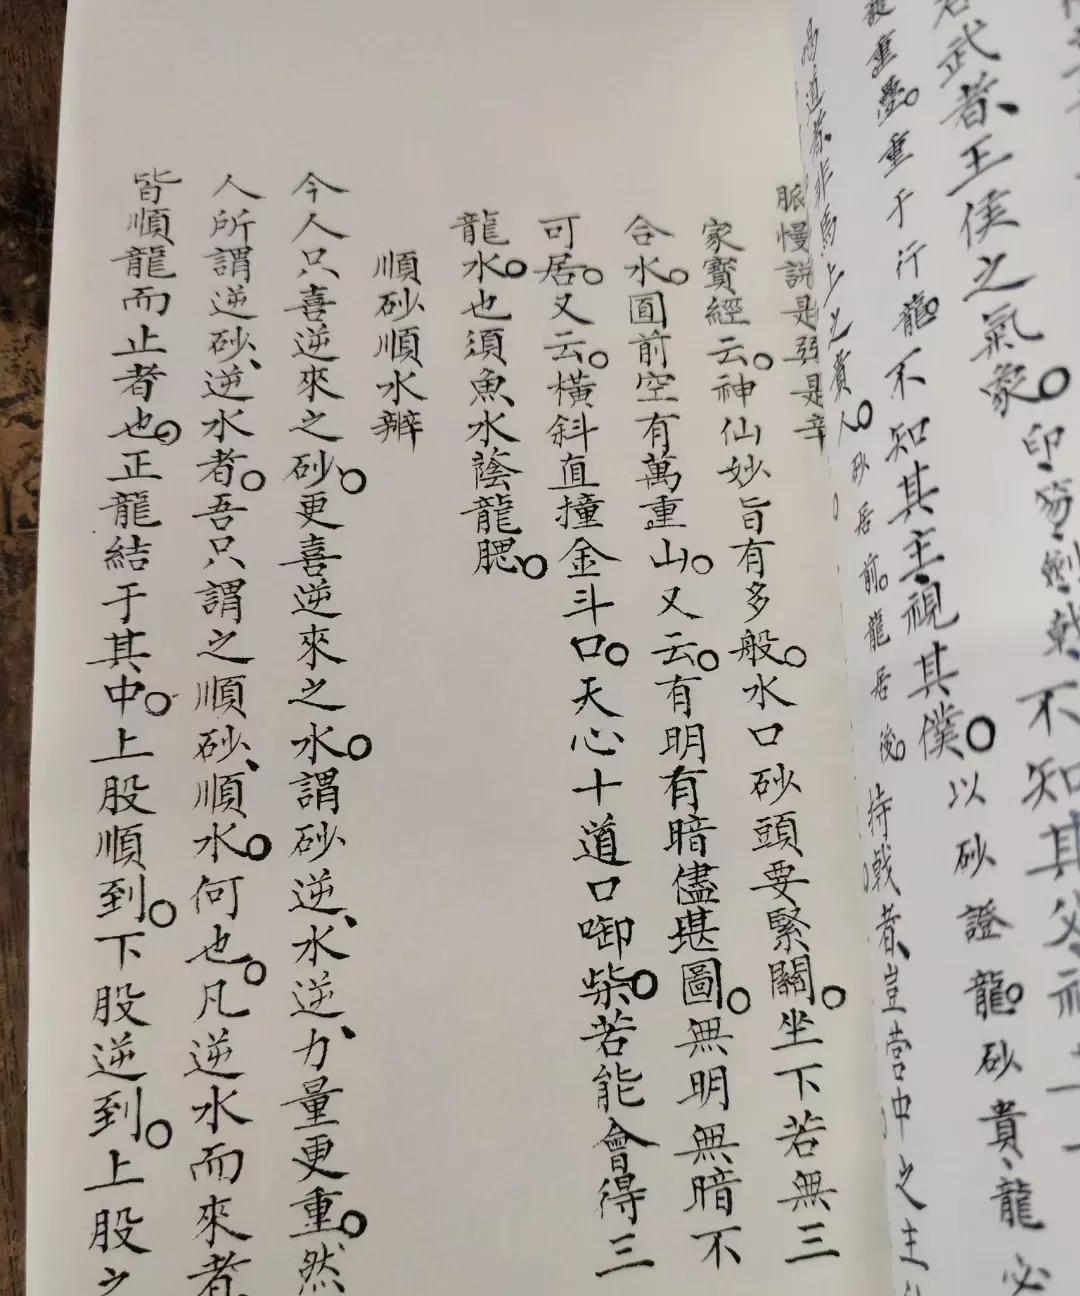 武者、王侯之氣象。印笏、劍戟、不知其父、祖
重疊。重于行龍。不知其主、視其僕。以砂證龍。砂貴、龍必
馮道者、非馬上之貴人。砂居前。龍居後。持戟者、豈営中之主
脈慢説是强是辛
家寳經云。神仙妙旨有多般。水口砂頭要緊關。坐下若無三
合水。圓前空有萬重山。又云。有明有暗儘堪圖。無明無暗不
可居。又云。橫斜直撞金斗口。天心十道口啣柴。若能會得三
龍水。也須魚水蔭龍腮。
順砂順水辨
今人只喜逆來之砂。更喜逆來之水。謂砂逆、水逆、力量更重。然
人所謂逆砂、逆水者。吾只謂之順砂、順水。何也。凡逆水而來者
皆順龍而止者也。正龍結于其中。上股順到。下股逆到。上股之